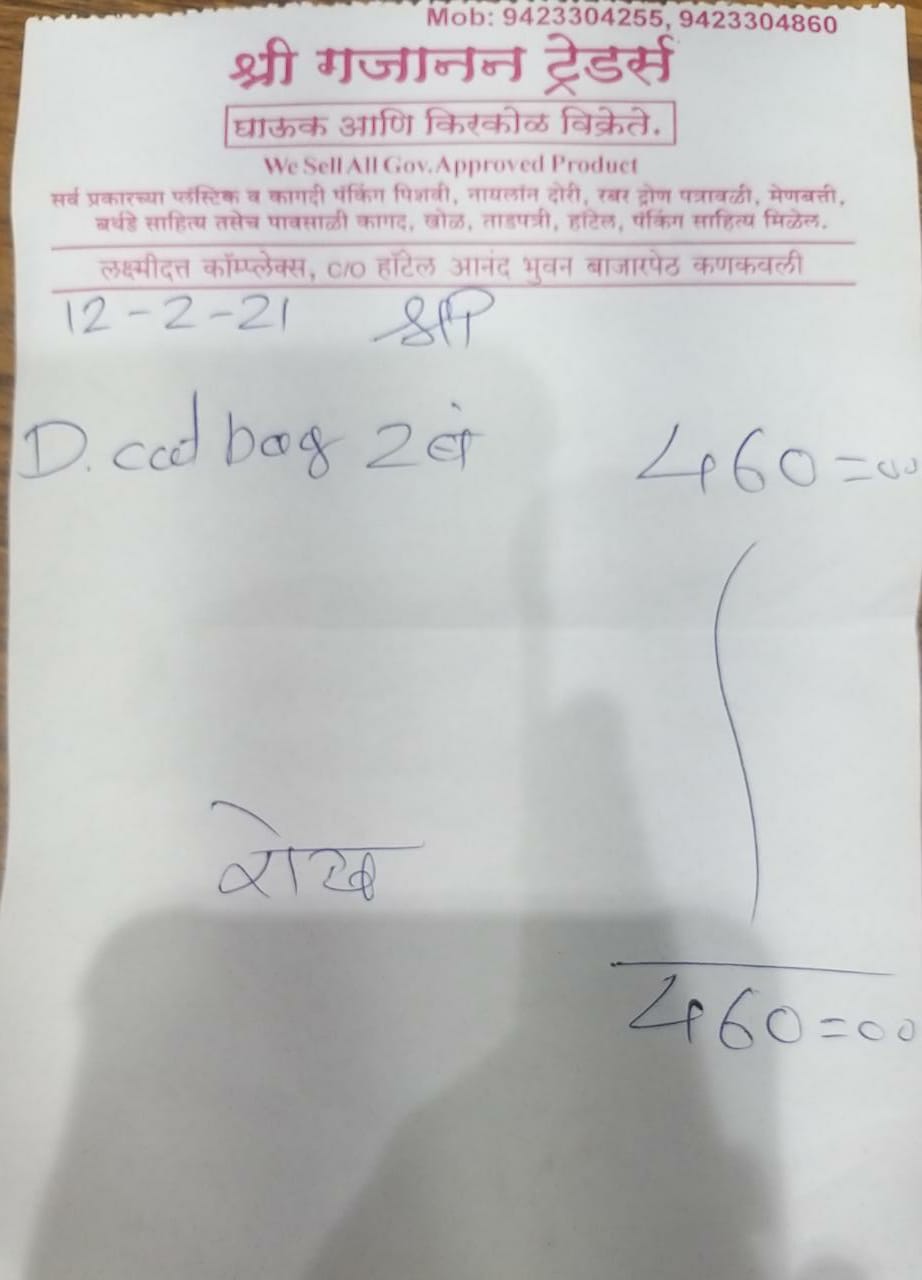 Mob: 9423304255, 9423304860
श्री गजानन ट्रेडर्स
घाऊक आणि किरकोळ विक्रेते.
We Sell All Gov. Approved Product
सर्व प्रकारच्या प्लॅस्टिक व कागदी पॅकिंग पिशवी, नायलॉन दोरी, रबर द्रोण पत्रावळी, मेणबत्ती,
बर्थडे साहित्य तसेच पावसाळी कागद, खोळ, ताडपत्री, हॉटेल, पॅकिंग साहित्य मिळेल.
लक्ष्मीदत्त कॉम्प्लेक्स, C/O हॉटेल आनंद भुवन बाजारपेठ कणकवली
12-2-21
D. cut bag 2 460=00
रोख
460=00